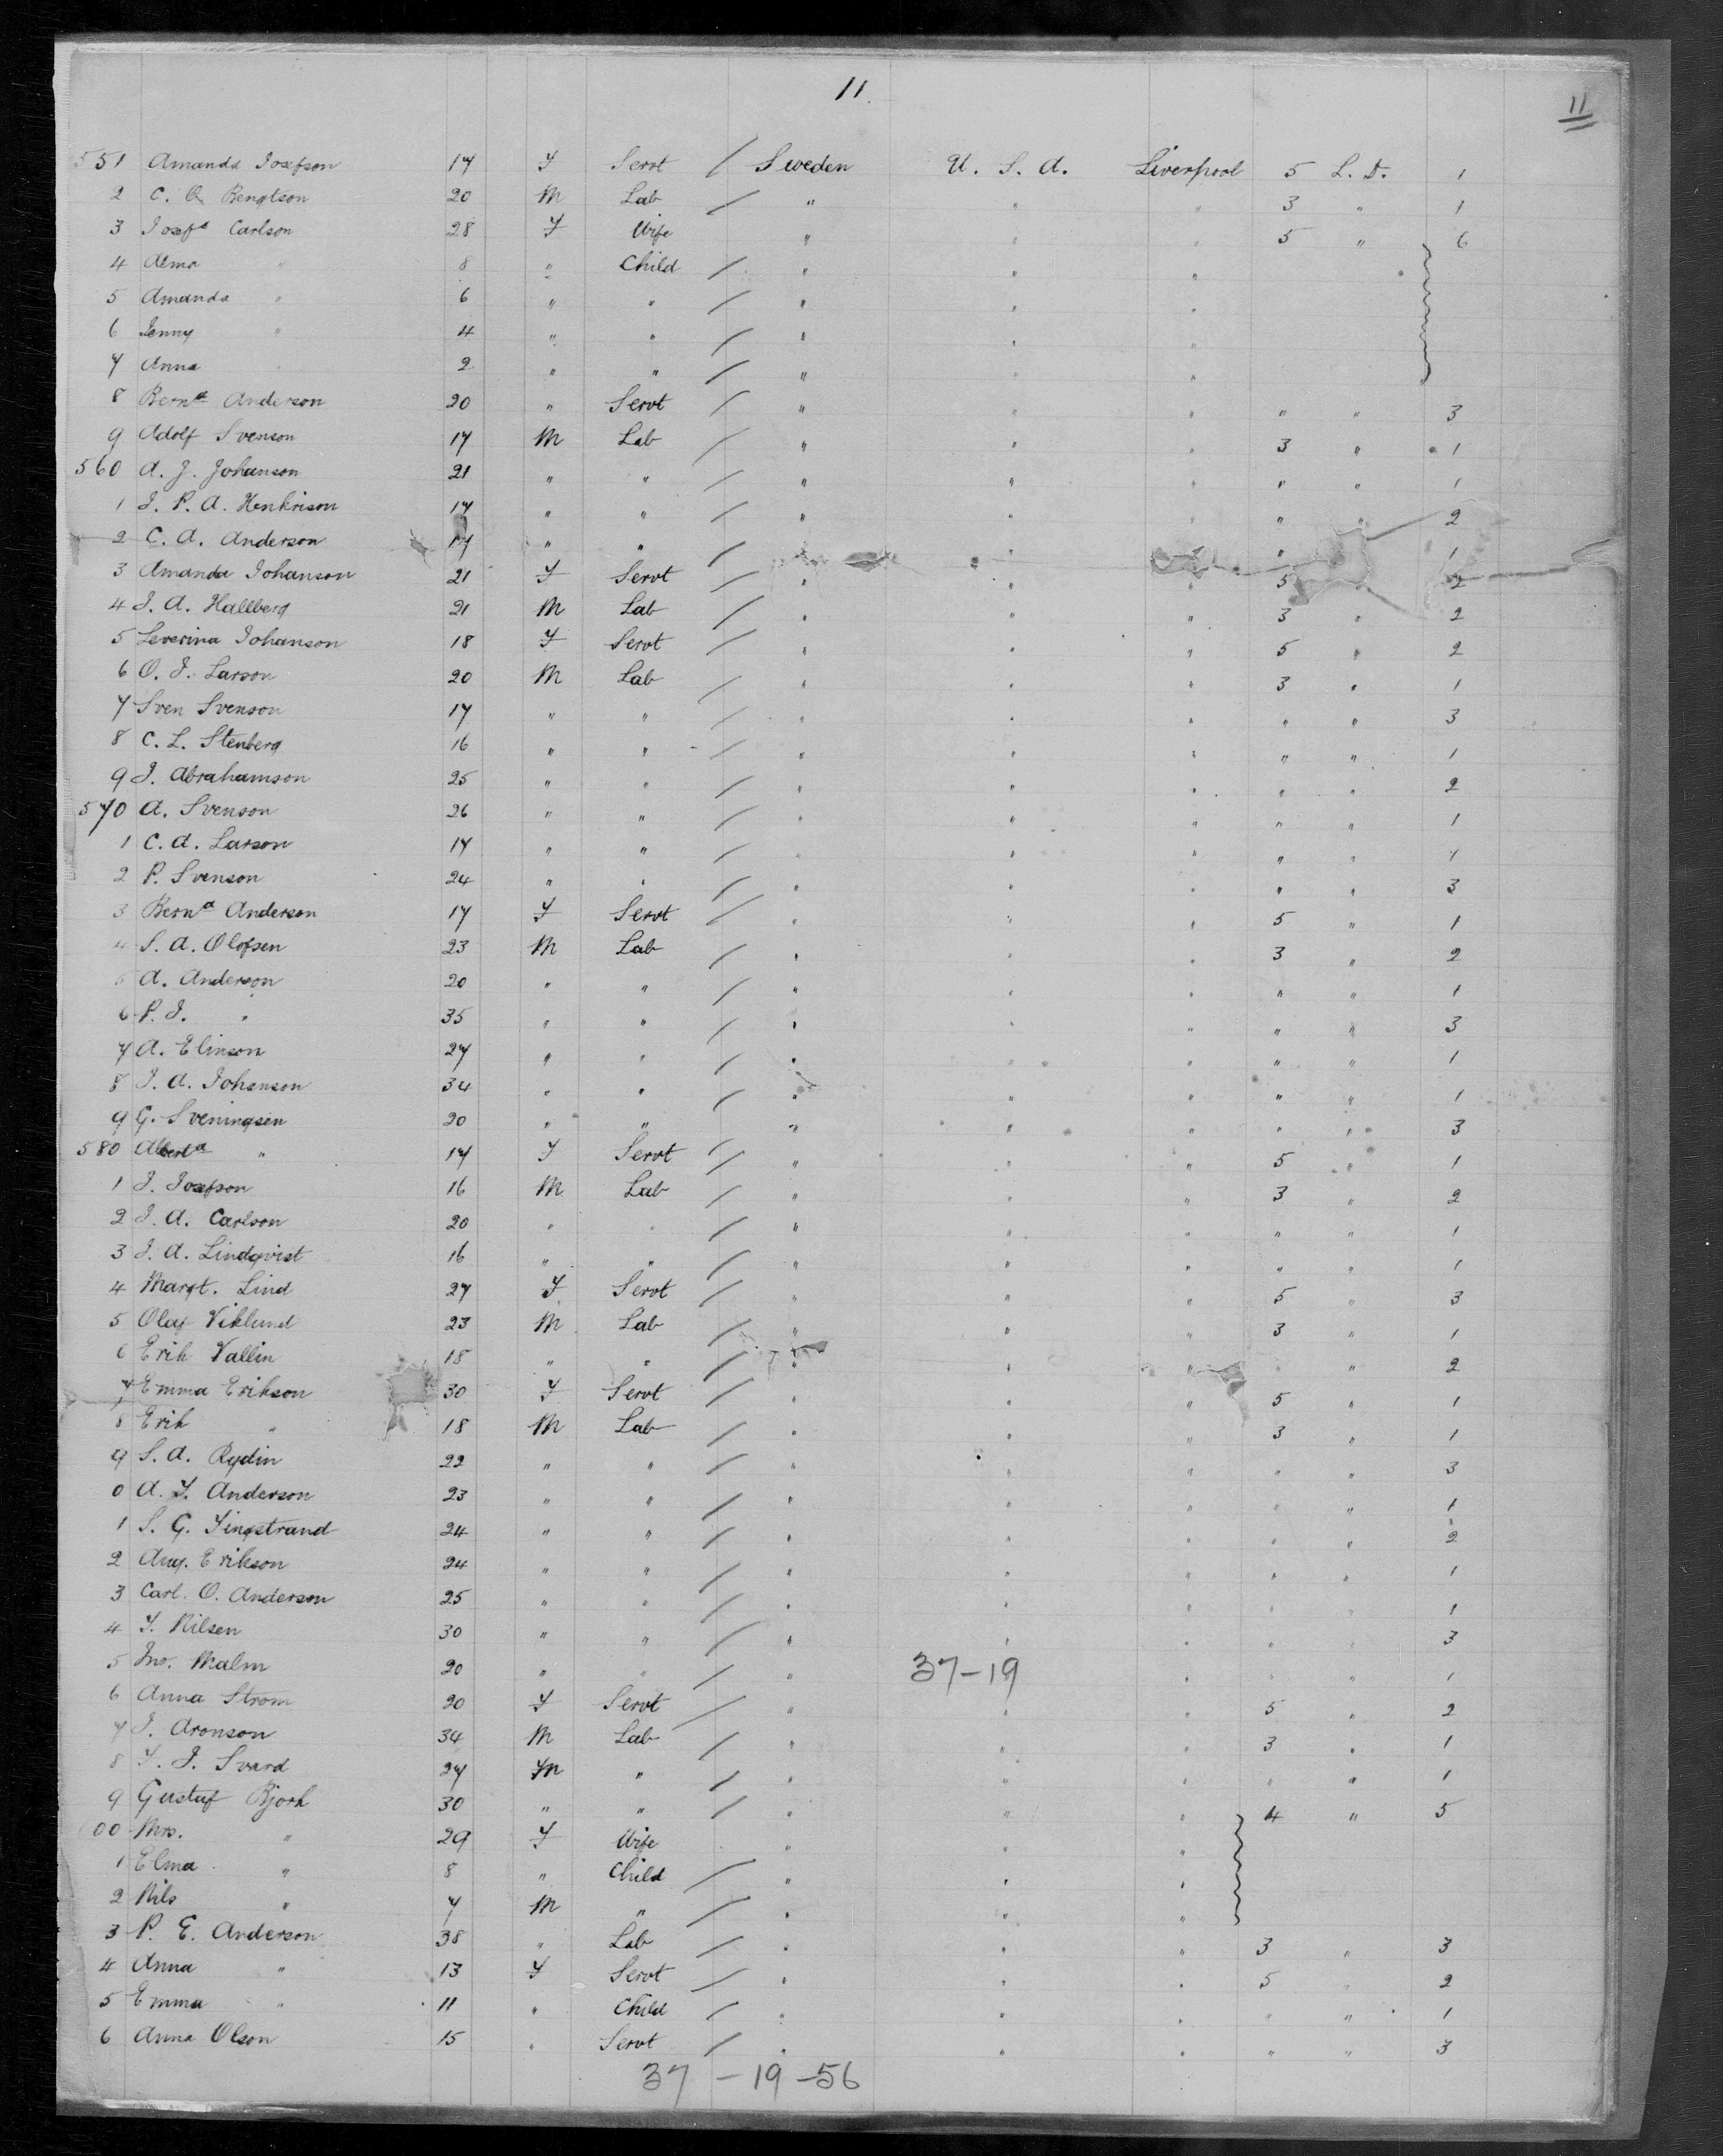 11.
11
551 Amanda Josefson 17 F Servt / Sweden U. S. A. Liverpool 5 L. D. 1
2 C. O. Bengtson 20 M Lab / " " " 3 " 1
3 Josefa Carlson 28 F Wife " " " 5 " 6
4 Alma " 8 " Child / " " "
5 Amanda " 6 " " / " " "
6 Jenny " 4 " " / " " "
7 Anna 2 " " / " " "
8 Berna Anderson 20 " Servt / " " " " " 3
9 Adolf Svenson 17 M Lab / " " " 3 " 1
560 A. J. Johanson 21 " " / " " " " " 1
1 J. P. A. Henkrison 17 " " / " " " " " 2
2 C. A. Anderson 17 " " / " " " 1
3 Amanda Johanson 21 F Servt / " " " 5 2
4 J. A. Hallberg 21 M Lab / " " " 3 " 2
5 Severina Johanson 18 F Servt / " " " 5 " 2
6 O. J. Larson 20 M Lab / " " " 3 " 1
7 Sven Svenson 17 " " / " " " " " 3
8 C. L. Stenberg 16 " " / " " " " " 1
9 J. Abrahamson 25 " " / " " " " " 2
570 A. Svenson 26 " " / " " " " " 1
1 C. A. Larson 17 " " / " " " " " 1
2 P. Svenson 24 " " / " " " " " 3
3 Berna Anderson 17 F Servt / " " " 5 " 1
4 S. A. Olofsen 23 M Lab / " " " 3 " 2
5 A. Anderson 20 " " / " " " " " 1
6 P. J. " 35 " " / " " " " " 3
7 A. Elinson 27 " " / " " " " " 1
8 J. A. Johanson 34 " " / " " " " " 1
9 G. Sveningsen 20 " " / " " " " " 3
580 Alberta " 17 F Servt / " " " 5 " 1
1 J. Josefson 16 M Lab / " " " 3 " 2
2 J. A. Carlson 20 " " / " " " " " 1
3 J. A. Lindqvist 16 " " / " " " " " 1
4 Margt. Lind 27 F Servt / " " " 5 " 3
5 Olaf Viklund 23 M Lab / " " " 3 " 1
6 Erik Vallin 18 " " / " " " " " 2
7 Emma Erikson 30 F Servt / " " " 5 " 1
8 Erik " 18 M Lab / " " " 3 " 1
9 S. A. Rydin 22 " " / " " " " " 3
0 A. F. Anderson 23 " " / " " " " " 1
1 S. G. Fingstrand 24 " " / " " " " " 2
2 Aug. Erikson 24 " " / " " " " " 1
3 Carl. O. Anderson 25 " " / " " " " " 1
4 F. Nilsen 30 " " / " " " " " 3
5 Jno. Malm 20 " " / " 37-19 " " " 1
6 Anna Strom 20 F Servt / " " " 5 " 2
7 J. Aronson 34 M Lab / " " " 3 " 1
8 F. J. Svard 27 M " / " " " " " 1
9 Gustaf Bjork 30 " " / " " " 4 " 5
00 Mrs. " 29 F Wife " " "
1 Elma " 8 " Child / " " "
2 Nils " 7 M " / " " "
3 P. E. Anderson 38 " Lab / " " " 3 " 3
4 Anna " 13 F Servt / " " " 5 " 2
5 Emma " 11 " Child / " " " " " 1
6 Anna Olson 15 " Servt / " " " " " 3
37-19-56